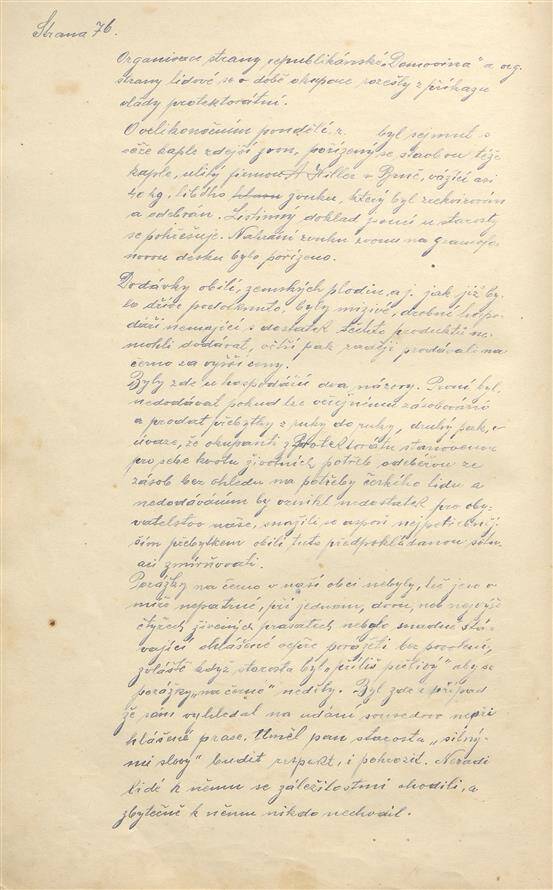 Strana 76.
Organisace strany republikánské „Domovina“ a org.
strany lidové se v době okupace rozešly z příkazu
vlády protektorátní.
O velikonočním pondělí r. byl sejmut s
věže kaple zdejší zvon, pořízený se stavbou téže
kaple, ulitý firmou Hiller v Brně, vážící asi
40 kg, libého zvuku, který byl zrekvirován
a odebrán. Listinný doklad zvonu u starosty
se pohřešuje. Nahrání zvuku zvonu na gramofo-
novou desku bylo pořízeno.
Dodávky obilí, zemských plodin, a j. jak již by-
lo dříve podotknuto, byly mizivé, drobní hospo-
dáři nemající s dostatek těchto produktů ne-
mohli dodávat, větší pak raději prodávali na
černo za vyšší ceny.
Byly zde u hospodářů dva názory. První byl,
nedodávat pokud lze veřejnému zásobování
a prodat přebytky z ruky do ruky, druhý pak, v
úvaze, že okupanti z Protektorátu stanovenou
pro sebe kvotu životních potřeb odeberou ze
zásob bez ohledu na potřeby českého lidu a
nedodáváním by vznikl nedostatek pro oby-
vatelstvo naše, snažili se aspoň nejpotřebněj-
ším přebytkem obilí tuto předpokládanou
zmírňovati.
Porážky na černo v naší obci nebyly, leč jen v
míře nepatrné, při jednom, dvou, neb nejvýše
čtyřech živených prasatech nebylo snadné stá-
vající ohlášené vepře poraziti bez povolení,
zvláště když starosta byl „příliš pečlivý“ aby se
porážky „na černo“ neděly. Byl zde i případ
že sám vyhledal na udání sousedovo nepři-
hlášené prase. Uměl pan starosta „silný-
mi slovy“ budit respekt, i pohrozit. Neradi
lidé k němu se záležitostmi chodili, a
zbytečně k němu nikdo nechodil.